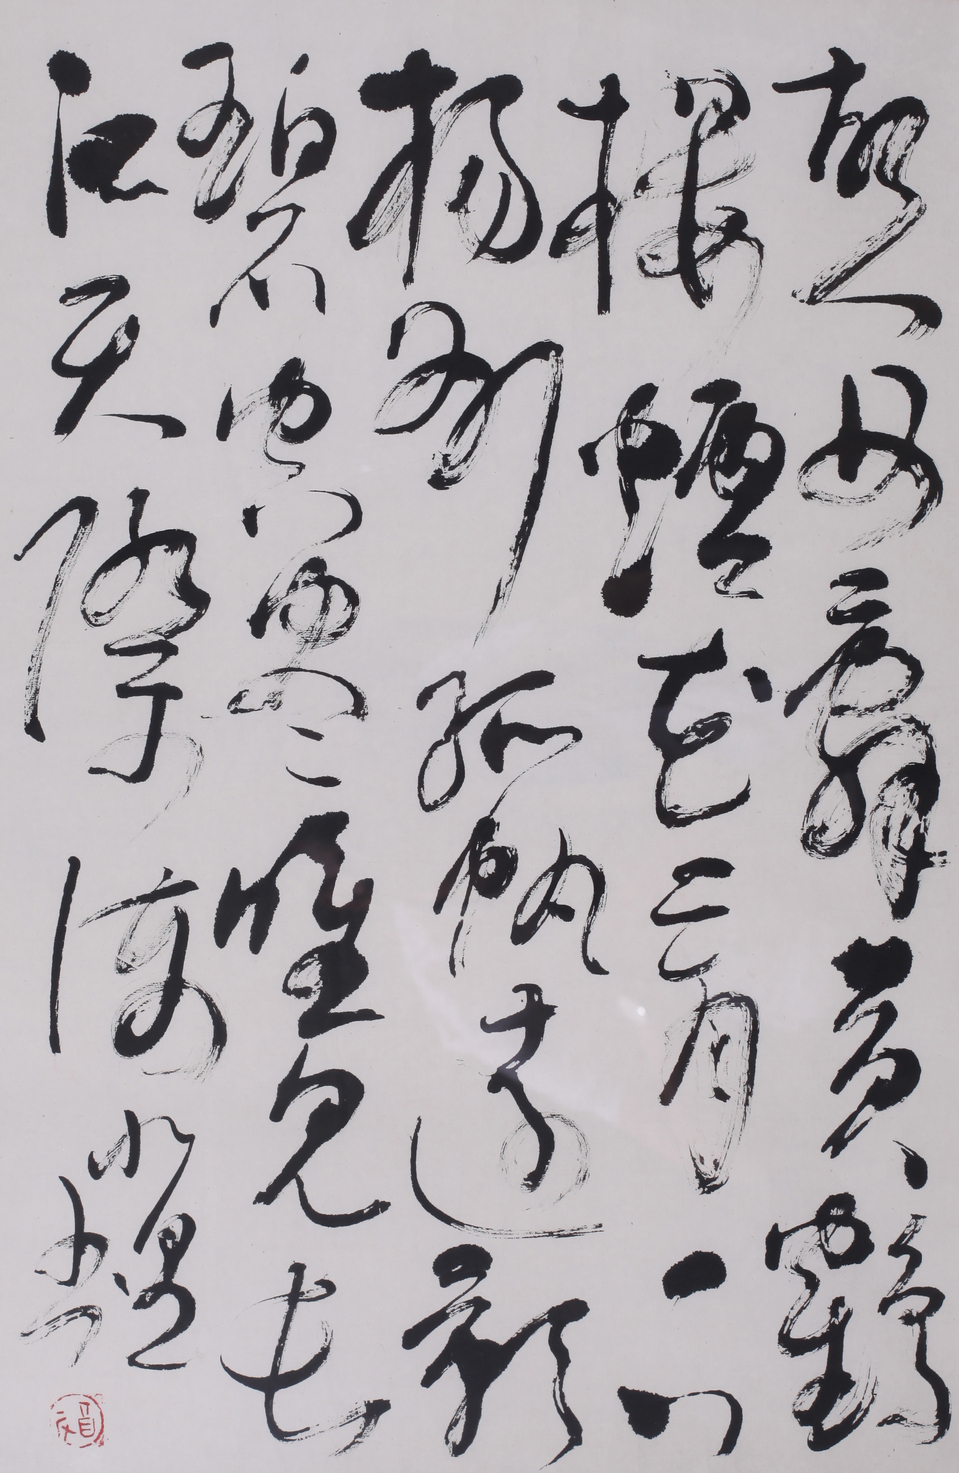 故人西辭黃鶴
樓煙花三月下
揚州孤帆遠影
碧空盡唯見長
江天際流